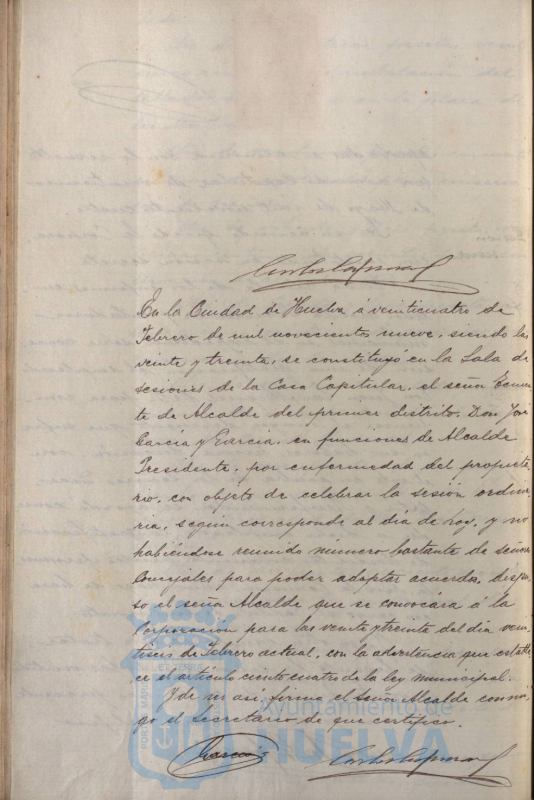 En la Ciudad de Huelva á veinticuatro de
Febrero de mil novecientos nueve, siendo las
veinte y treinta, se constituyó en la Sala de
sesiones de la Casa Capitular, el señor Tenien
te de Alcalde del primer distrito, Don José
García y García, en funciones de Alcalde
Presidente, por enfermedad del propieta
rio, con objeto de celebrar la sesión ordina
ria, según corresponde al día de hoy, y no
habiéndose reunido número bastante de señores
Concejales para poder adoptar acuerdos, dispu
so el señor Alcalde que se convocára á la
Corporación para las veinte y treinta del día vein
tiseis de Febrero actual, con la advertencia que estable
ce el artículo ciento cuatro de la ley municipal.
Y de ser así firma el señor Alcalde conmi
go el Secretario de que certifico.
García
Ayuntamiento de
HUELVA